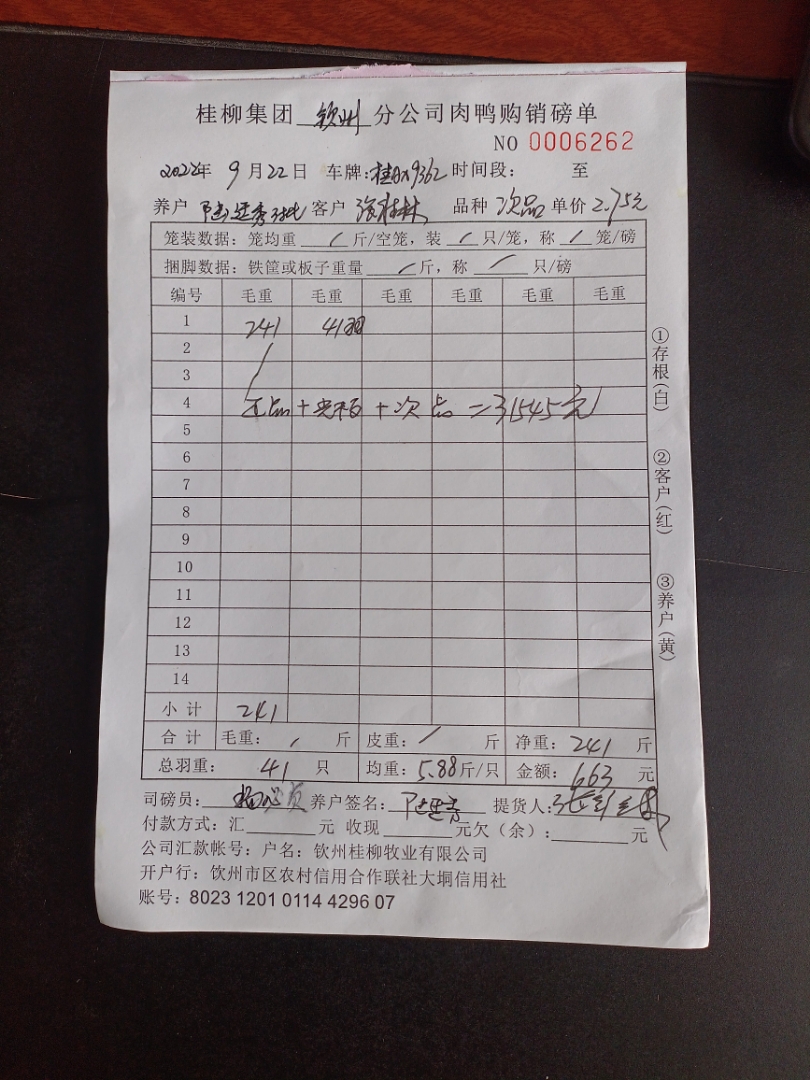 桂柳集团 钦州 分公司肉鸭购销磅单
NO 0006262
2022年 9月22日 车牌: 9362 时间段: 至
养户 客户 品种 次品 单价 2.75元
笼装数据: 笼均重 / 斤/空笼, 装 / 只/笼, 称 / 笼/磅
捆脚数据: 铁筐或板子重量 / 斤, 称 / 只/磅
编号 毛重 毛重 毛重 毛重 毛重 毛重
1 241 41羽
2
3
4 正品+ +次品=31545元
5
6
7
8
9
10
11
12
13
14
小计 241
合计 毛重: / 斤 皮重: / 斤 净重: 241 斤
总羽重: 41 只 均重: 5.88斤/只 金额: 663 元
司磅员: 养户签名: 提货人:
付款方式: 汇 元 收现 元欠(余): 元
公司汇款帐号: 户名: 钦州桂柳牧业有限公司
开户行: 钦州市区农村信用合作联社大垌信用社
账号: 8023 1201 0114 4296 07
①存根(白)
②客户(红)
③养户(黄)